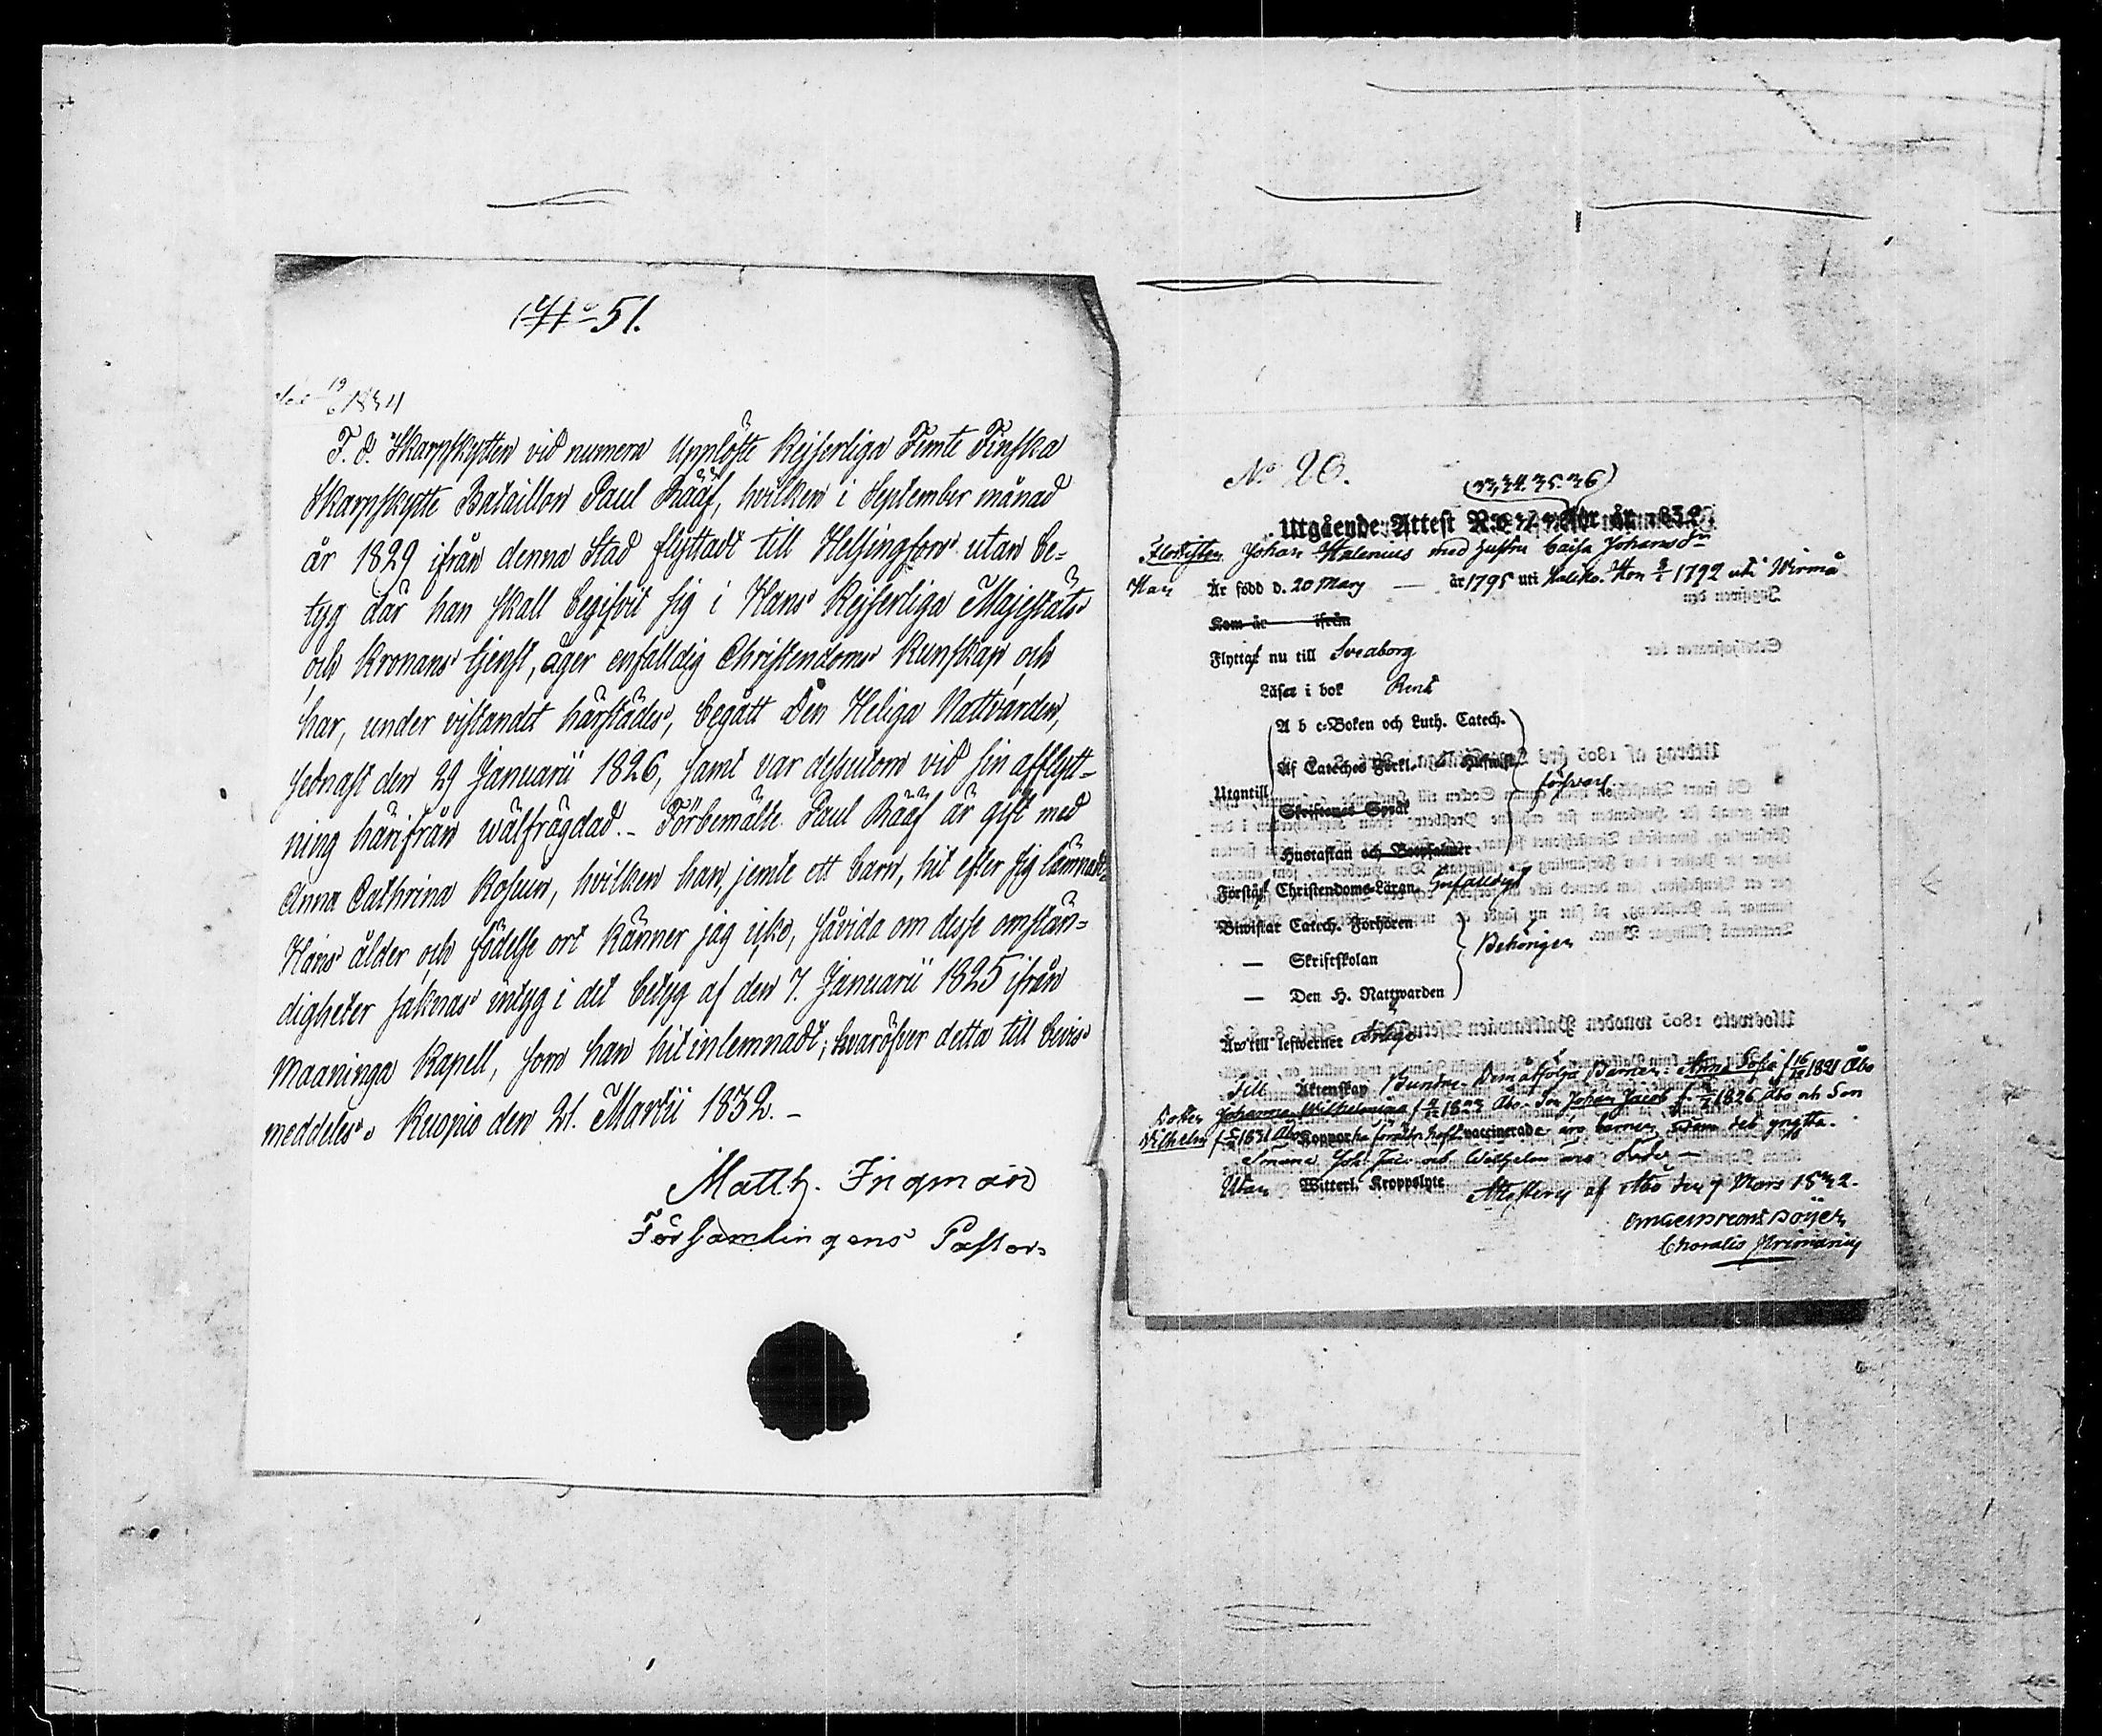 No 51.
19/6 1834
F. d. Skarpskytten vid numera Upplöste Kejserliga Femte Finska
Skarpskytte Bataillon Paul Rääf, hvilken i September månad
år 1829 ifrån denna Stad flyttadt till Helsingfors utan be-
tyg där han skall begifvit sig i Hans Kejserliga Majestäts
och Kronans tjenst, äger enfalldig Christendoms kunskap och
har, under vistandet härstädes, begått Den Heliga Nattvarden,
sednast den 29 Januarii 1826, samt var dessutom vid sin afflytt-
ning härifrån wälfrägdad. - Förbemälte Paul Rääf är gift med
Anna Cathrina Rosuun, hvilken han, jemte ett barn, hit efter sig lämnadt.
Hans ålder och födelse ort känner jag icke, såvida om desse omstän-
digheter saknas intyg i det betyg af den 7. Januarii 1825 ifrån
Maaninga Kapell, som han hit inlemnadt; hvaröfver detta till bevis
meddelas. Kuopio den 21. Martii 1832. -
Matth. Ingman
Församlingens Pastor.
No 20.
(33, 34. 35. 36)
Utgående Attest No för år 1832
Johan Stalenius med hustru Caisa Johansdr
Han Är född d. 20 Mars — år 1795 uti Haliko. Hon 1792 uti Wirmo
Kom år ifrån
Flytta nu till Sveaborg
Läser i bok Rent
A b c-Boken och Luth. Catech.
Af Cateches Förkl.
Utantill
försvarl.
Skriftenes Språk
Hustaflan och Botpsalmer
Förstå Christendoms-Läran. Enfaldigt
Biwistat Catech. Förhören
Behörigen
— Skriftskolan
— Den H. Nattwarden
Är till lefwernet
Till Äktenskap Bundne. Dem åtfölja Barnen: Anna Sofia f 16/12 1821 Åbo
Dotter Johanna Wilhelmina f 1823 Åbo. Son Johan Jacob f. 1826 Åbo och Son
Wilhelm f 1831 Åbo vaccinerade äro barnen utom det yngsta.
Sönerna Joh. Jac. och Wilhelm äro döde —
Utan Witterl. Kroppslyte Attesteras af Åbo den 7 Mars 1832.